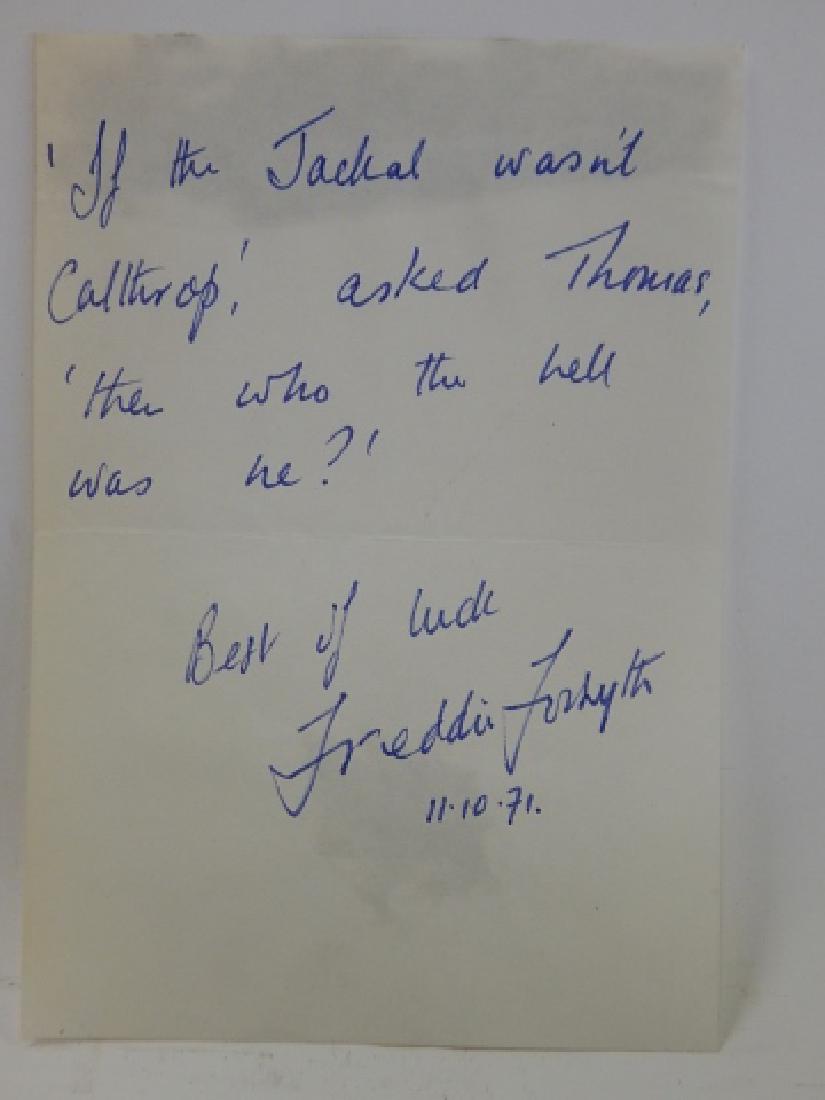 'If the Jackal wasn't
Calthrop,' asked Thomas,
'then who the hell
was he?'
Best of luck
Freddie Forsyth
11·10·71.